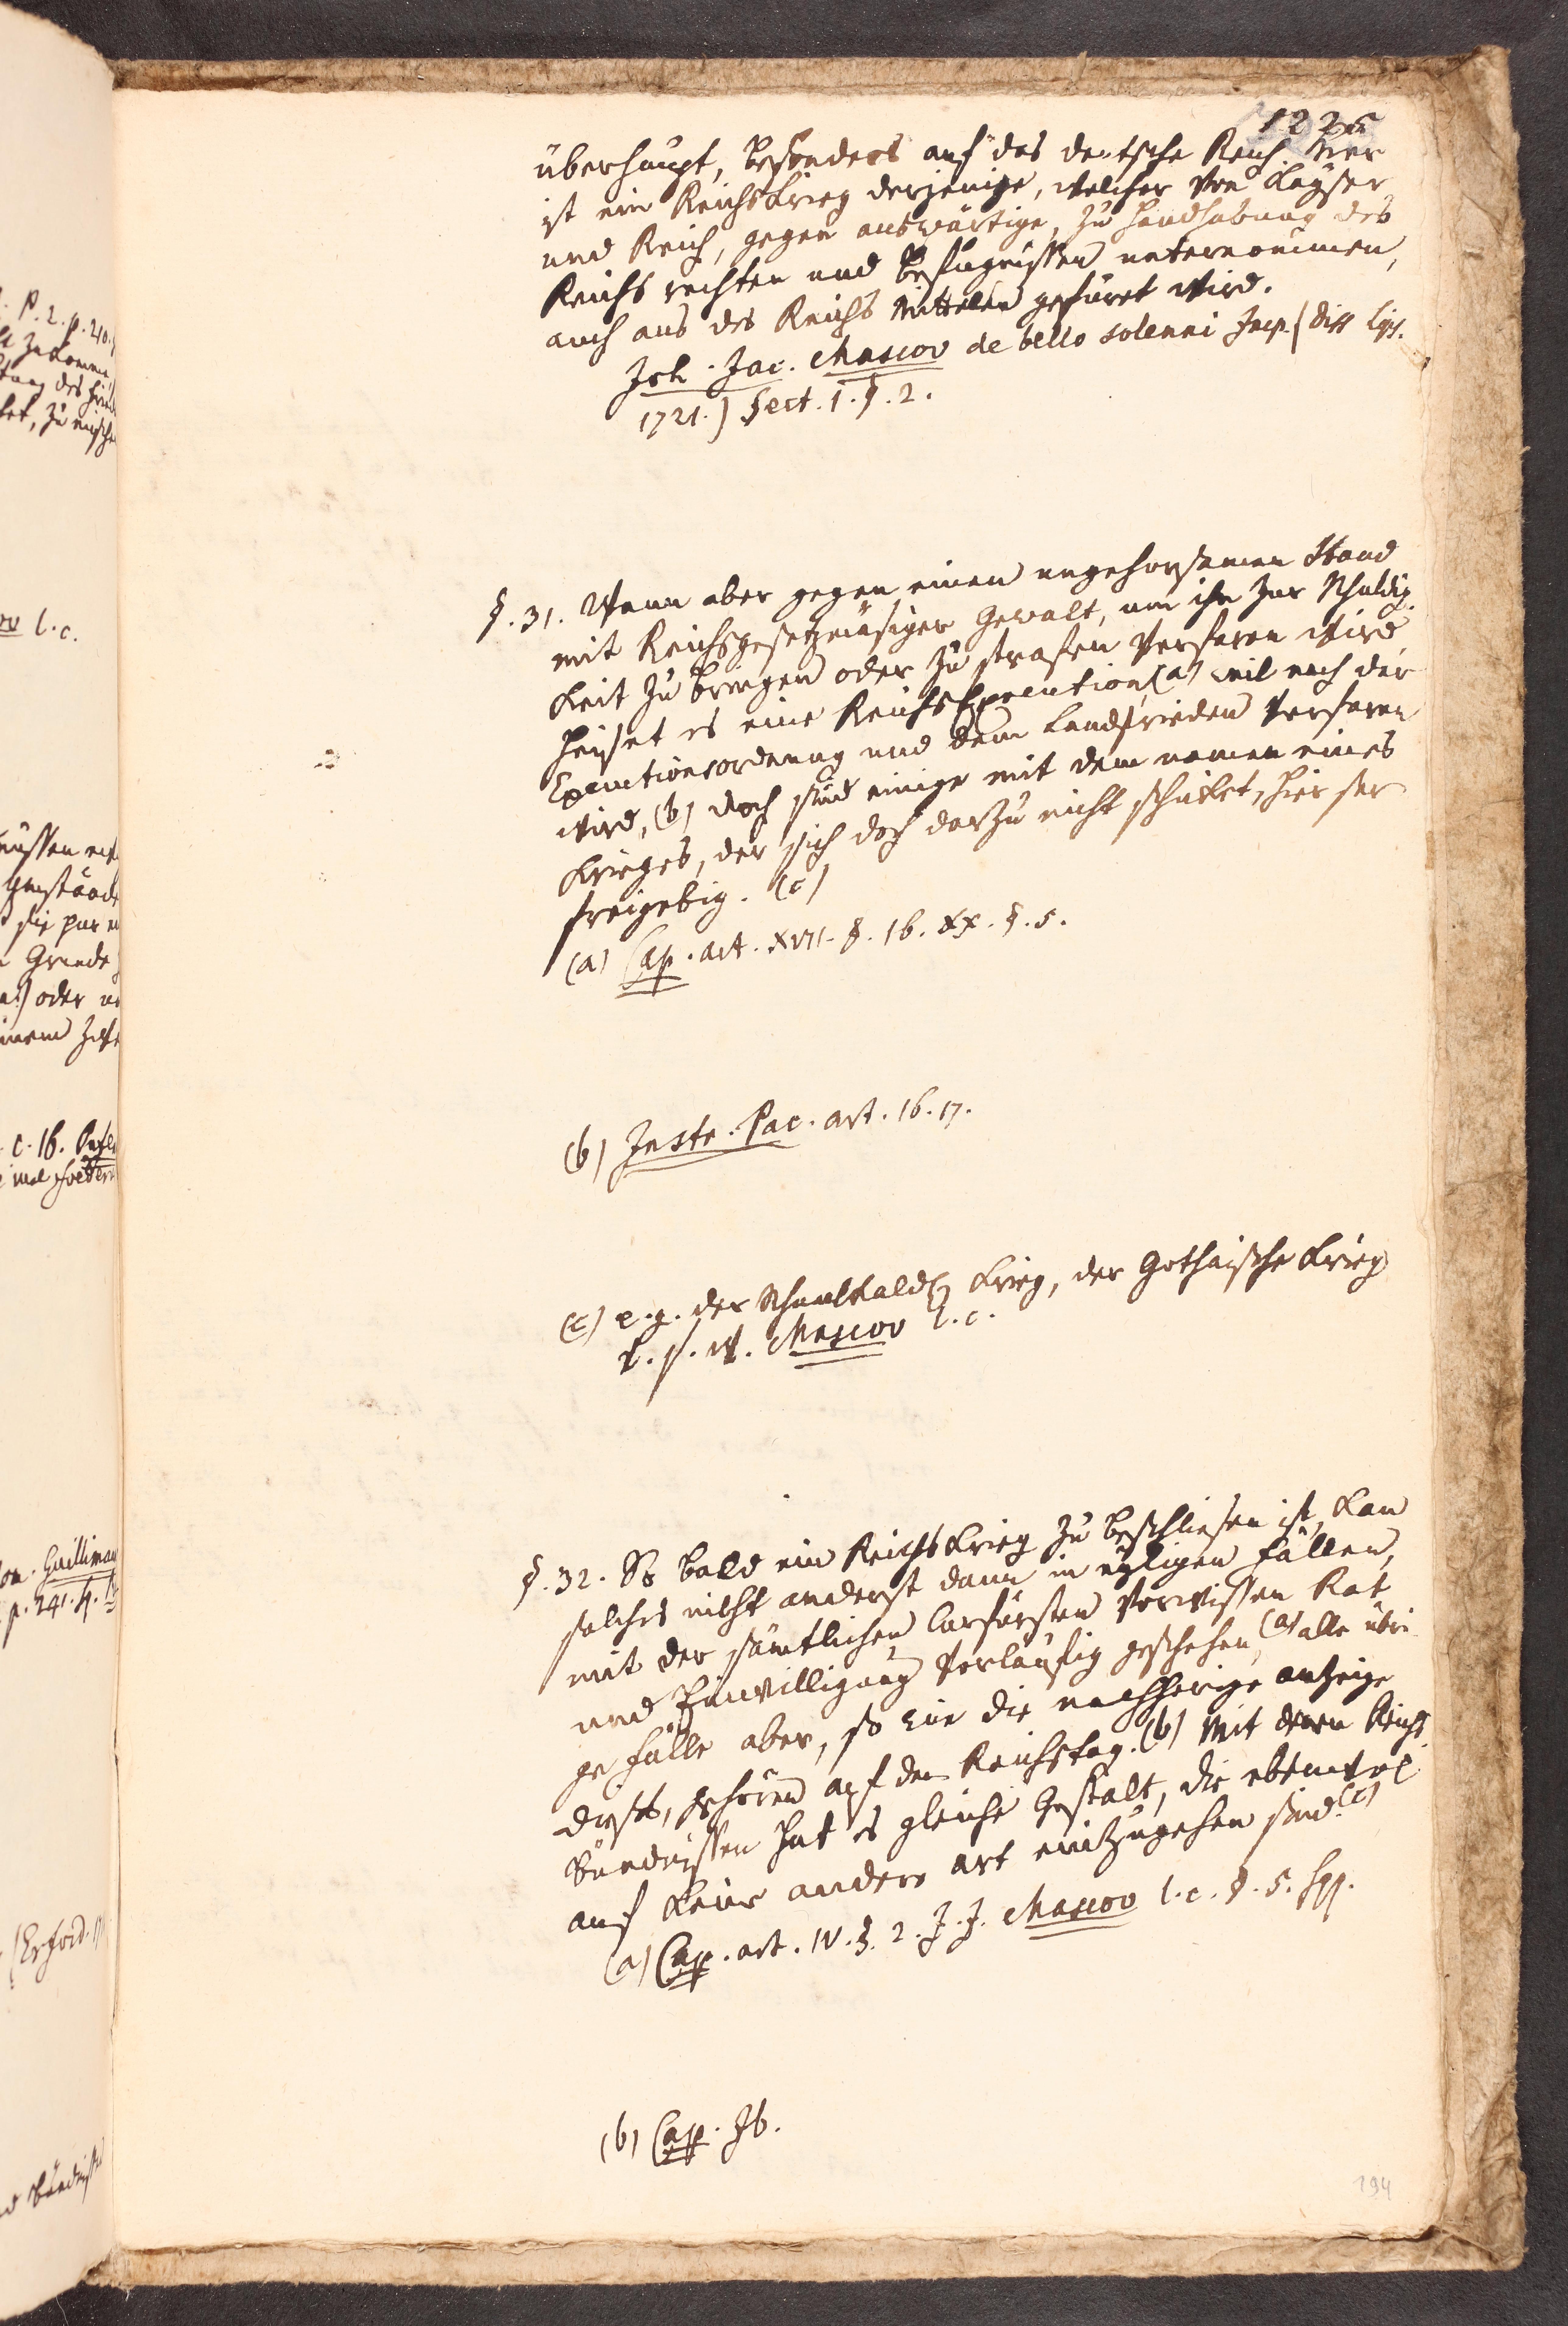 1225
überhaupt, besonders auf das deutsche Reich. Nur
ist ein Reichskrieg derjenige, welcher von Kayser
und Reich, gegen auswärtige, zu Handhabung des
Reichs rechten und Befugnissen unternommen,
auch aus des Reichs Mittelen gefüret wird.
Joh. Jac. Mascov de bello solenni Imp. (Diss Lips.
1721.) Sect. 1. §. 2.
§. 31. Wann aber gegen einen ungehorsamen Stand
mit Reichsgesetzmäsiger Gewalt, um ihn zur Schuldig-
keit zu bringen oder zu strafen verfaren wird
heiset es eine Reichs Execution, (a) weil nach der
Executionsordnung und dem Landfrieden verfaren
wird, (b) doch sind einige mit dem namen eines
Krieges, der sich doch darzu nicht schicket, hier ser
freigebig. (c)
(a) Cap. art. XVII. §. 16. XX. §. 5.
(b) Instr. Pac. art. 16. 17.
(c) e. g. der Schmalkald. Krieg, der Gothaische Krieg
u. s. w. Mascov l. c.
§. 32. So bald ein Reichs Krieg zu beschliesen ist, kan
solches nicht anderst dann in eyligen Fällen,
mit der sämtlichen Curfürsten Vorwissen Rat
und Einwilligung vorläufig geschehen, (a) alle übri-
ge Fälle aber, so wie die nachherige anzeige
dises, gehören auf den Reichstag. (b) Mit denen Reichs
Bündnissen hat es gleiche Gestalt, die ebenwol
auf keine andere art einzugehen sind. (c)
(a) Cap. art. IV. §. 2. J. J. Mascov l. c. §. 5. sqq.
(b) Cap. Ib.
194
P. 2. p. 240.
l. c.
Grunde
oder
c. 16.
Guilliman
p. 241.